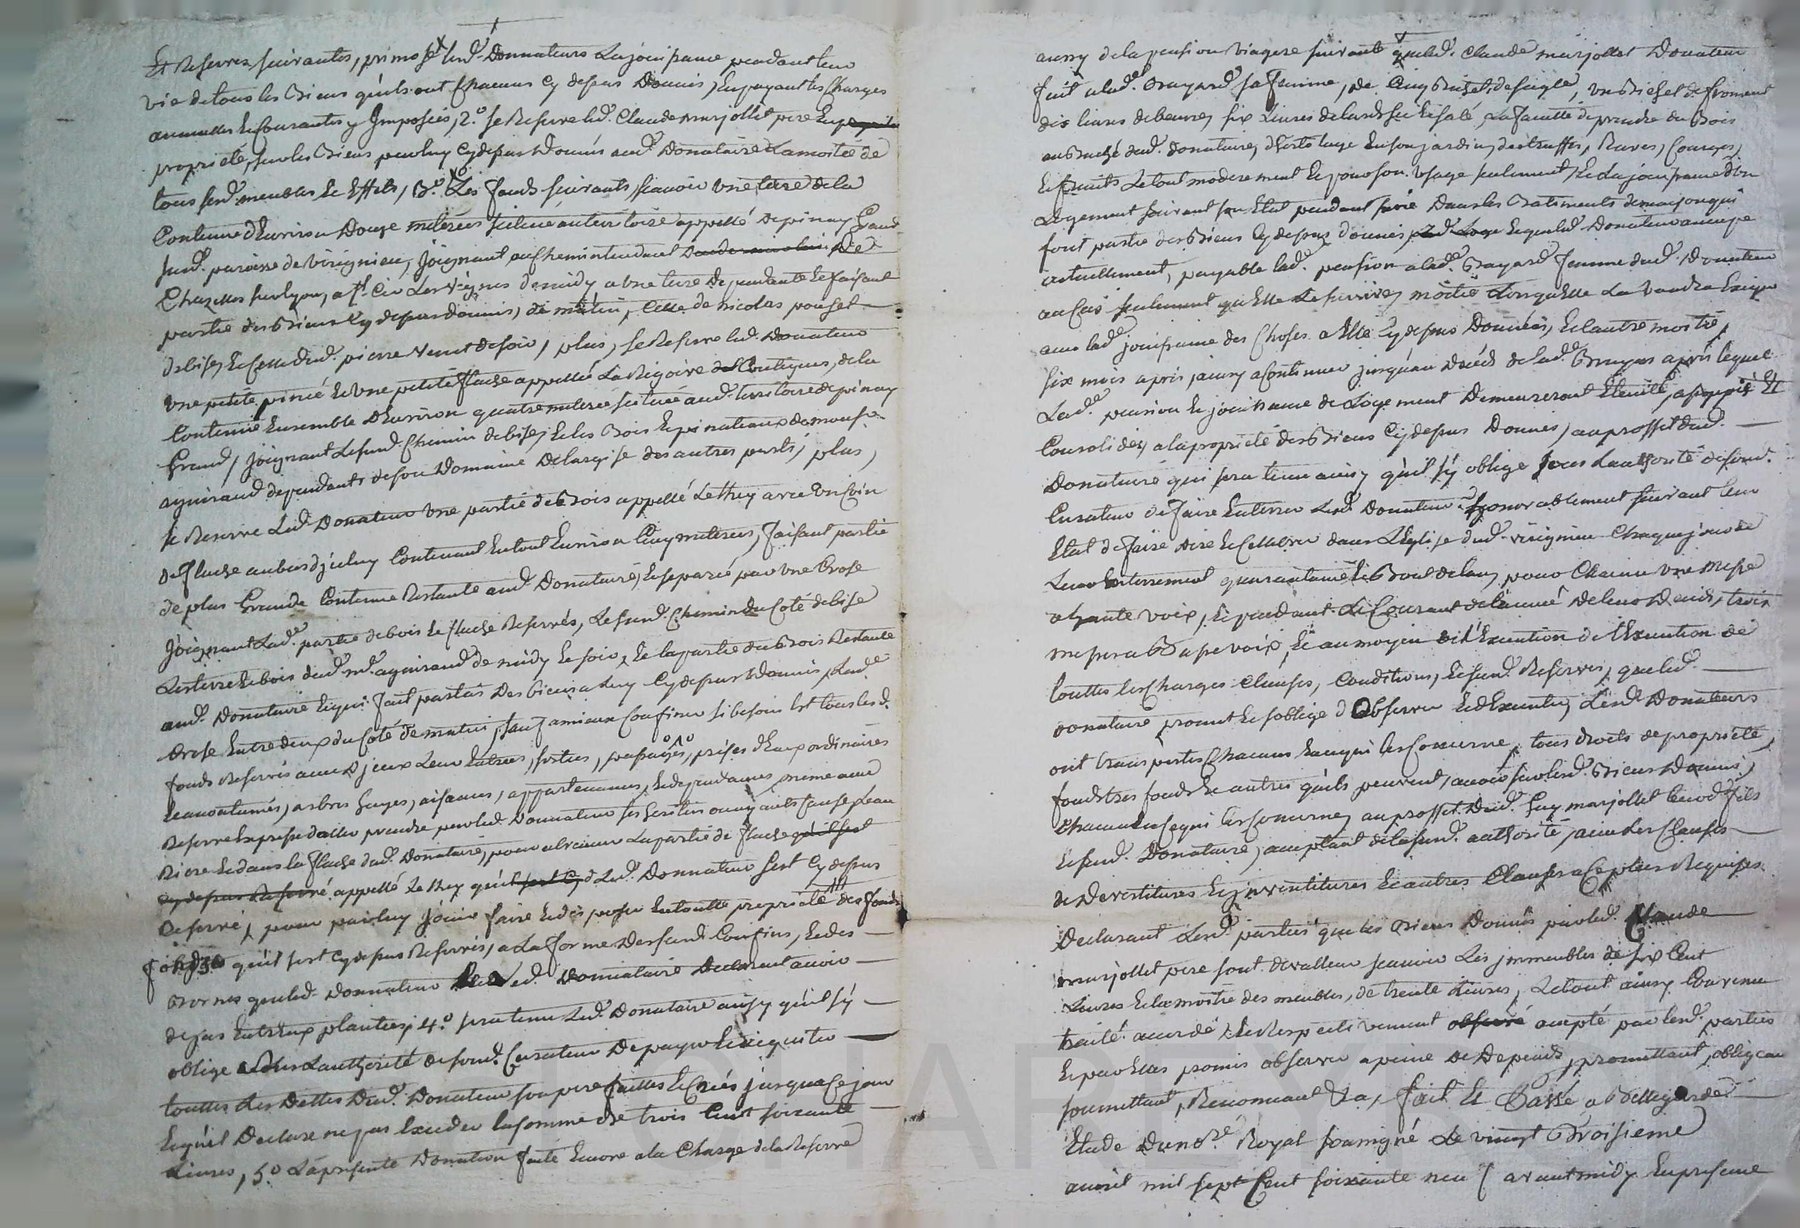 Et Reserves suivantes, primo se lesd. Donnateurs La jouissance pendant leur
vie de tous les Biens qu'ils ont Chacuns cy depas Donnés, En payant les Charges
annuelles Et Courantes y Imposées, 2.° se Reserve led. Claude marjollet pere En
propriété, sur les Biens par luy cy depas Donnés aud. Donataire La moitié de
tous sesd. meubles Et Effets, 3.° Les fonds suivants, scavoir une terre de la
Contenue d'Environ Douze meterées scituée au territoire appellé depinay Grand
susd. paroisse de virignieu, joignant au Chemin tendant De
Chazelles sur lyon, a st. Les vignes de midy a une terre Dependante Et faisant
partie des Biens Cy depas donnés, de matin, Celle de nicolas poncet
de bise, Et Celle dud. pierre venet de soir, plus, se Reserve led. Donnateur
une petite pinée Et une petite flache appellée La Regoire Contigues, de la
Contenue Ensemble D'Environ quatre meterée scituée aud. territoire de pinay
Grand, joignant Lesusd. Chemin de bise, Et les Bois Et pinateaux de mons.r
aguiraud dependants de son Domaine De largise des autres parts, plus,
se Reserve Led. Donnateur une partie de Bois appellé Le they avec Un Coin
De flache au bas d'jceluy Contenant En tout Environ Cinq meterées, faisant partie
de plus Grande Contenue Restante aud. Donataire, Et separée par une Brose
joignant Lad.e partie de bois Et flache Reservés, Lesusd. Chemin Du Coté de bise
Les terre Et bois dud. mr. aguiraud de midy Et soir, Et la partie du Bois Restante
aud. Donataire Et qui fait partie Des biens a luy Cy depas Donnés, Lad.e
Brose Entre deux du Coté de matin, sauf a mieux Confiner si besoin Est tous lesd.
fonds Reservés avec jceux Leur Entrées, sorties, passages, prises d'Eaux ordinaires
Et accoutumés, arbres, hayes, aisances, appartenances, Et dependances, même avec
Reserve Expresse d'aller prendre par led. Donnateur
Riere Et dans la flache dud. Donataire, pour abreuver La partie de flache qu'il s'est
cy depas Reservé appellé Le they qu'il Led. Donnateur s'est Cy depas
Reservé, pour par luy jouir faire Et disposer En toutte propriété des fonds
qu'il s'est Cy depas Reservés, a La forme Des susd. Confins, Et des
Bornes que led. Donnateur Led. Donnataire Declarent avoir
deja Entr'Eux plantées, 4.° sera tenu Led. Donataire ainsy qu'il s'y
oblige sous L'authorité de sond. Curateur De payer Et acquitter
touttes Les Dettes Dud. Donnateur son pere faittes Et Créés jusqu'a Ce jour
Lequel Declare ne pas Exceder la somme de trois Cent soixante
Livres, 5.° La presente Donation faite Encore a la Charge de la Reserve
aussy de la pension viagere suivante que led. Claude marjollet Donateur
fait a lad.e Bayard sa femme, de Cinq Bichets de seigle, un Bichet de froment
dix livres de beurre, six Livres de lard sec Et salé, La faculté de prendre du Bois
au Buché dud. donataire, d'herbetage En son jardin, des truffes, Raves, Courges,
Et fruits Le tout moderement Et pour son usage seulement, Et La jouissance d'un
Logement suivant son Etat pendant sa vie Dans les Batiments de marjon qui
font partie des Biens Cy depas donnés Lequel led. Donateur occupe
actuellement, payable lad.e pension a lad.e Bayard femme dud. Donateur
au Cas seulement qu'Elle Le survive, moitié Lorsqu'Elle La voudra Exiger
avec lad.e jouissance des Choses a Elle Cy depas Données, Et l'autre moitié,
six mois après, ainsy a Continuer jusqu'au Décès de lad.e Bayard après lequel
Lad.e pension Et jouissance de Logement Demeureront Eteintes, assoupies Et
Consolidés a la propriété des Biens Cy depas Donnés, au proffit dud.
Donataire qui sera tenu ainsy qu'il s'y oblige sous L'authorité de sond.
Curateur de faire Enterrer Led. Donateur honorablement suivant leur
Etat de faire dire Et Cellebrer dans L'Eglise dud. virignieu Chaque jour de
Leur Enterrement quarantaine Et Bout de l'an, pour Chacun une messe
a haute voix, Et pendant Le Courant de l'année de leur Deceds, trois
messes a Basse voix, Et au moyen de l'Execution de l'Execution de
touttes les Charges Clauses, Conditions, Et susd. Reserves, que led.
donataire promet Et s'oblige d'Observer Et d'Executer, Lesd. Donateurs
ont transportés Chacuns En ce qui les Concerne, tous droits de propriété,
fonds tres fonds Et autres qu'ils peuvent avoir sur lesd. Biens Donnés,
Chacun En Ce qui Les Concerne, au proffit Dud. Guy marjollet leurd. fils
Et susd. Donataire, acceptant de la susd. authorité, avec Les Clauses
de Devestitures Et jnvestitures Et autres Clauses a Ce plus Requises
Declarant Lesd. parties que les Biens Donnés par led. Claude
marjollet pere sont de valleur scavoir Les jmmeubles de six Cent
Livres Et la moitié des meubles, de trente Livres, Le tout ainsy Convenu
traité accordé Et Respectivement observé accepté par lesd. parties
Et par Elles promis observer a peine de Depends, promettant, obligeant
soumettant, Renoncant &a, fait Et Passé a Bellegarde
Etude Du no.re Royal soussigné Le vingt Troisieme
avril mil sept Cent soixante neuf avant midy En presence